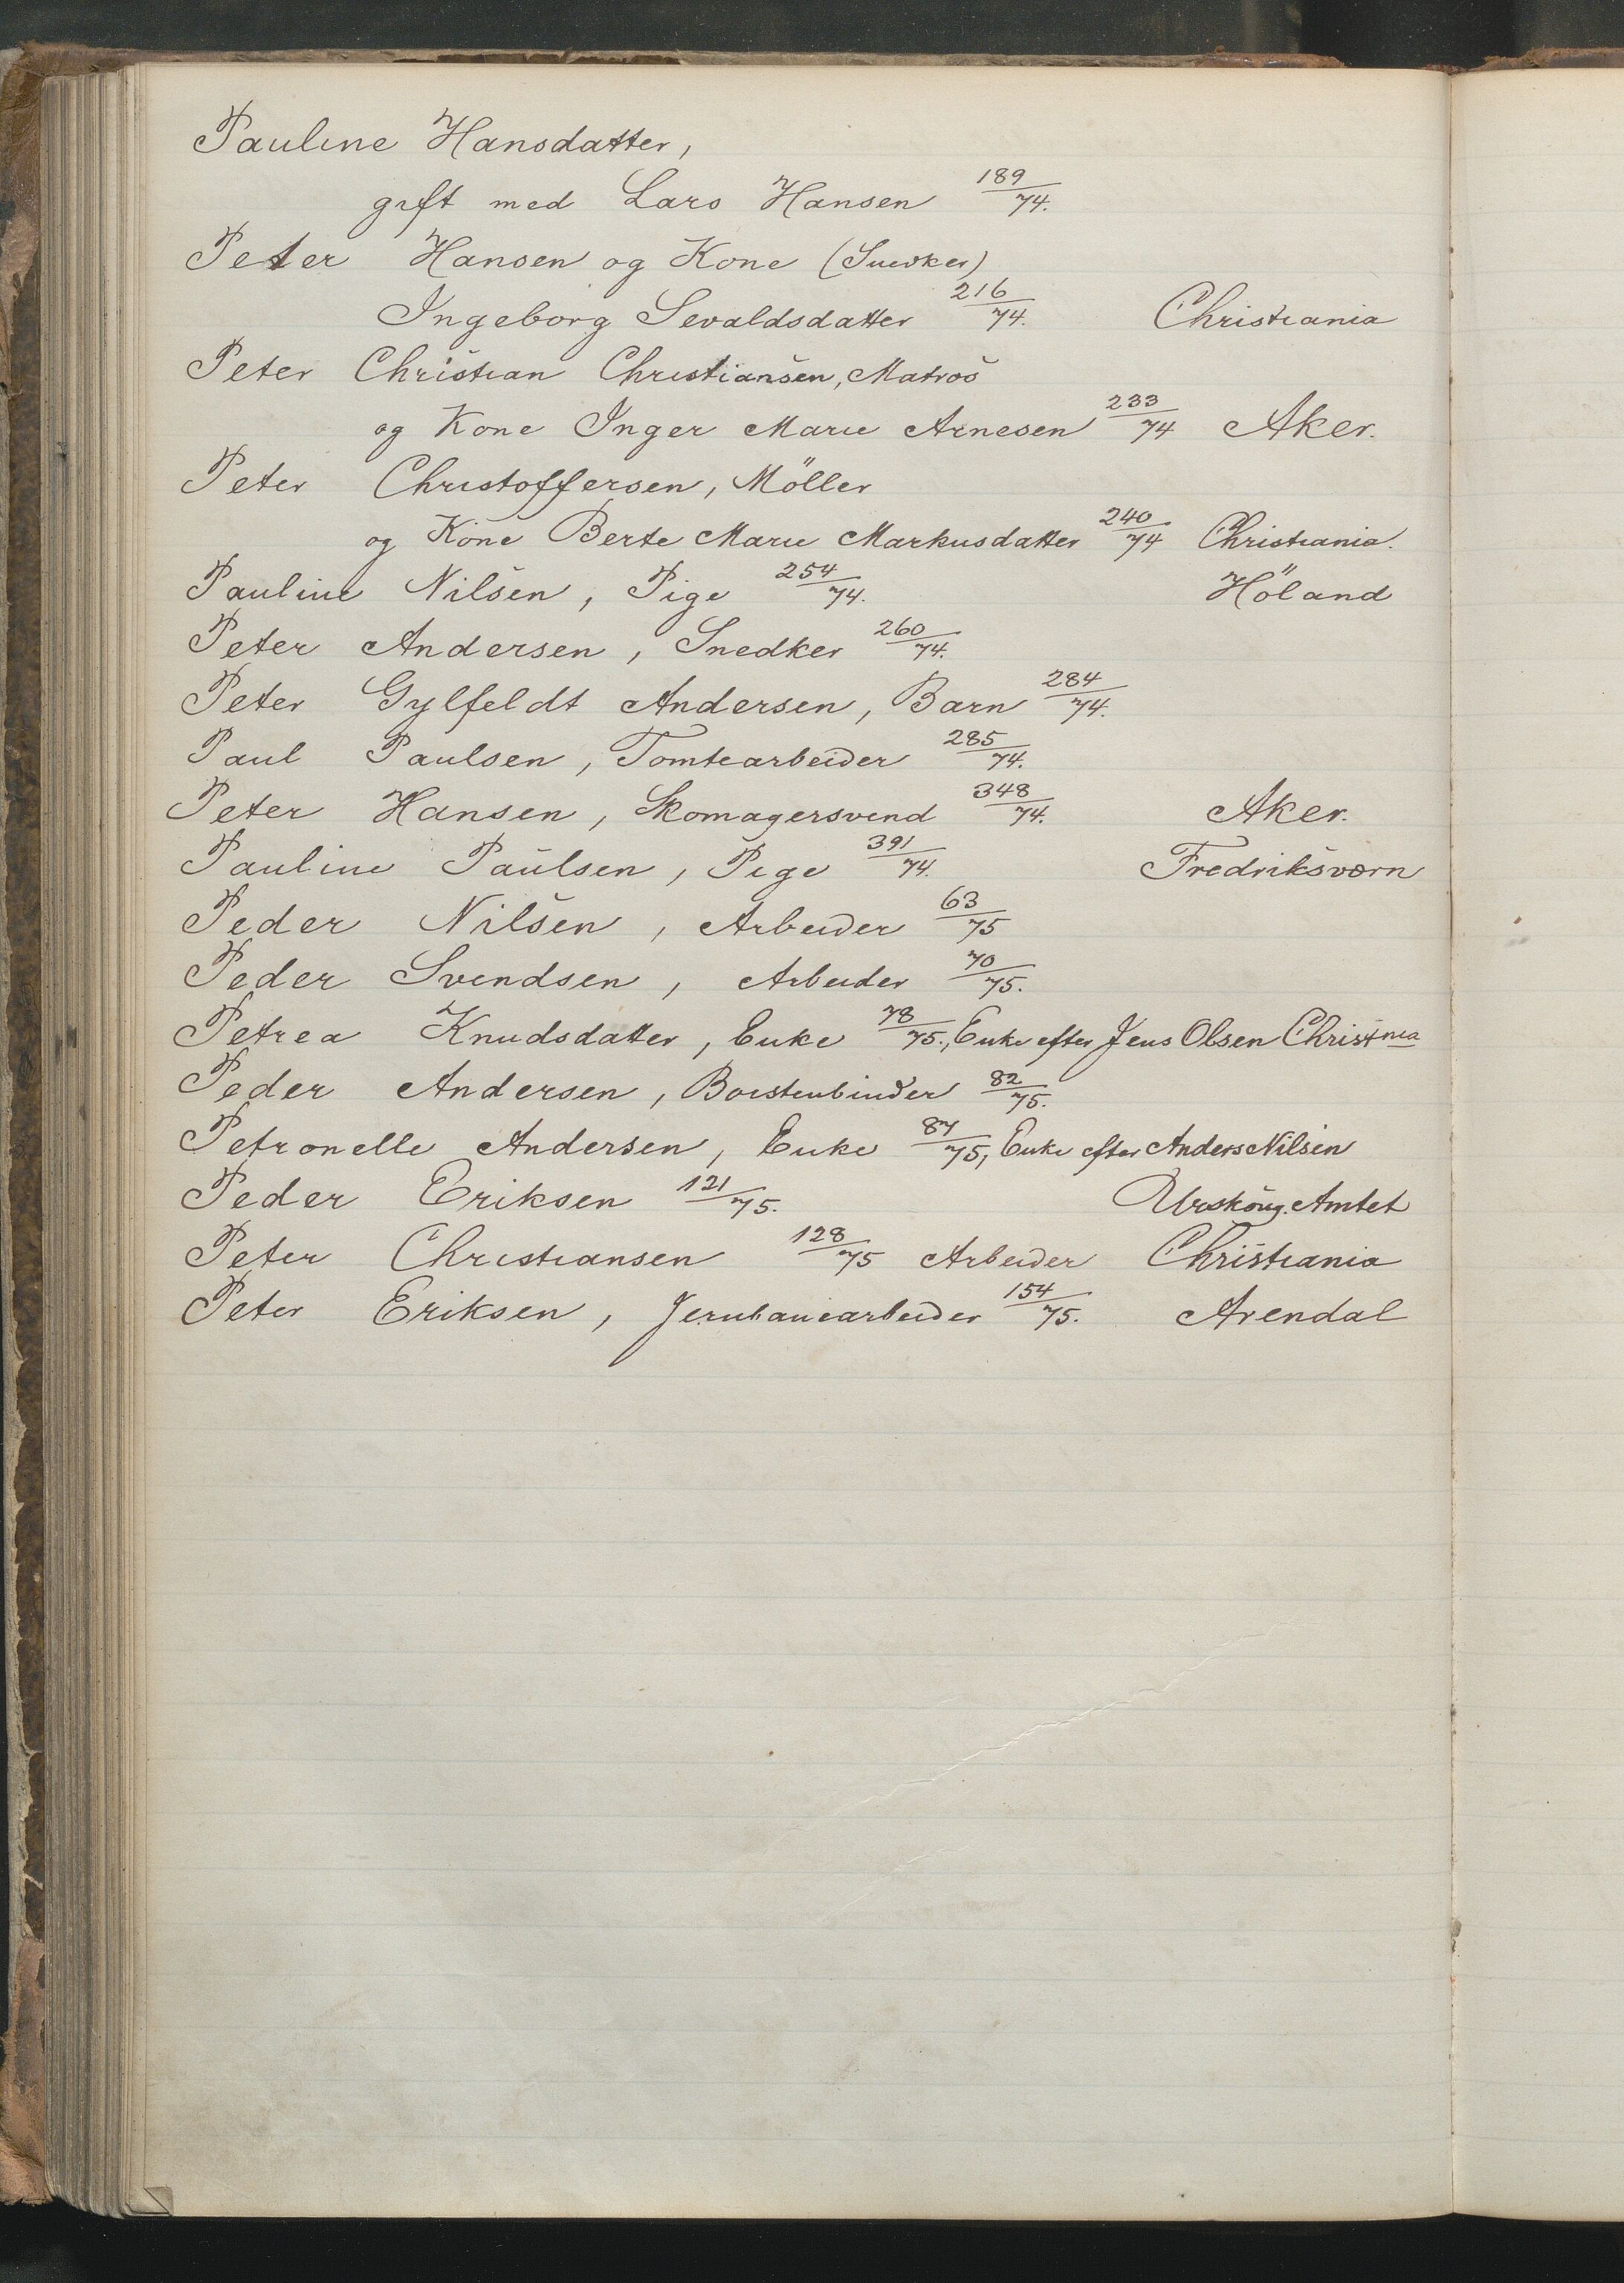 Pauline Hansdatter,
gift med Lars Hansen 189/74.
Peter Hansen og Kone (Snedker)
Ingeborg Sevaldsdatter 216/74. Christiania
Peter Christian Christiansen, Matros
og Kone Inger Marie Arnesen 233/74 Aker.
Peter Christoffersen, Möller
og Kone Berte Marie Markusdatter 240/74 Christiania.
Pauline Nilsen, Pige 254/74. Höland
Peter Andersen, Snedker 260/74.
Peter Gylfeldt Andersen, Barn 284/74.
Paul Paulsen, Tomtearbeider 285/74.
Peter Hansen, Skomagersvend 348/74. Aker.
Pauline Paulsen, Pige 391/74. Fredriksværn
Peder Nilsen, Arbeider 63/75
Peder Svendsen, Arbeider 70/75.
Petrea Knudsdatter, Enke 78/75., Enke efter Jens Olsen Christnia
Peder Andersen, Börstenbinder 82/75.
Petronelle Andersen, Enke 87/75, Enke efter Anders Nilsen
Peder Eriksen 121/75. Urskoug. Amtet
Peter Christiansen 128/75 Arbeider Christiania
Peter Eriksen, Jernbanearbeider 154/75. Arendal